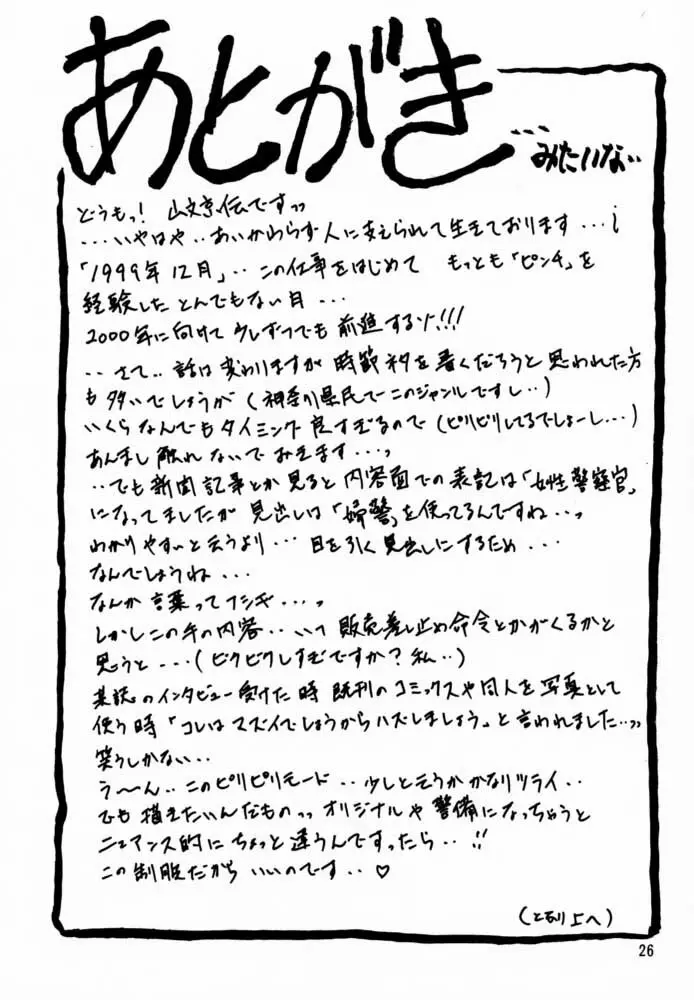 あとがき
…みたいな‥
どうもっ! 山文京伝ですっっ
…いやはや‥あいかわらず人に支えられて生きております…
「1999年12月」‥この仕事をはじめて もっとも「ピンチ」を
経験したとんでもない月…
2000年に向けて少しずつでも前進するゾ!!!
‥さて‥話は変わりますが時節ネタを書くだろうと思われた方
も多いでしょうが(神奈川県民でこのジャンルですし‥)
いくらなんでもタイミング良すぎるので(ピリピリしてるでしょーし…)
あんまし触れないでおきます…っ
‥でも新聞記事とか見ると内容面での表記は「女性警察官」
になってましたが見出しは「婦警」を使ってるんですね‥っ
わかりやすいと云うより…目を引く見出しにするため…
なんでしょうね…
なんか言葉ってフシギ…っ
しかしこの手の内容‥いつ販売差し止め命令とかがくるかと
思うと…(ビクビクしすぎですか?私‥)
某誌のインタビュー受けた時既刊のコミックスや同人を写真として
使う時「コレはマズイでしょうからハズしましょう」と言われました‥っっ
笑うしかない‥
う〜ん‥このピリピリモード‥少しと云うかかなりツライ‥
でも描きたいんだものっっオリジナルや警備になっちゃうと
ニュアンス的にちょっと違うんですったら‥!!
この制服だから いいのです‥♡
(となり上へ)
26